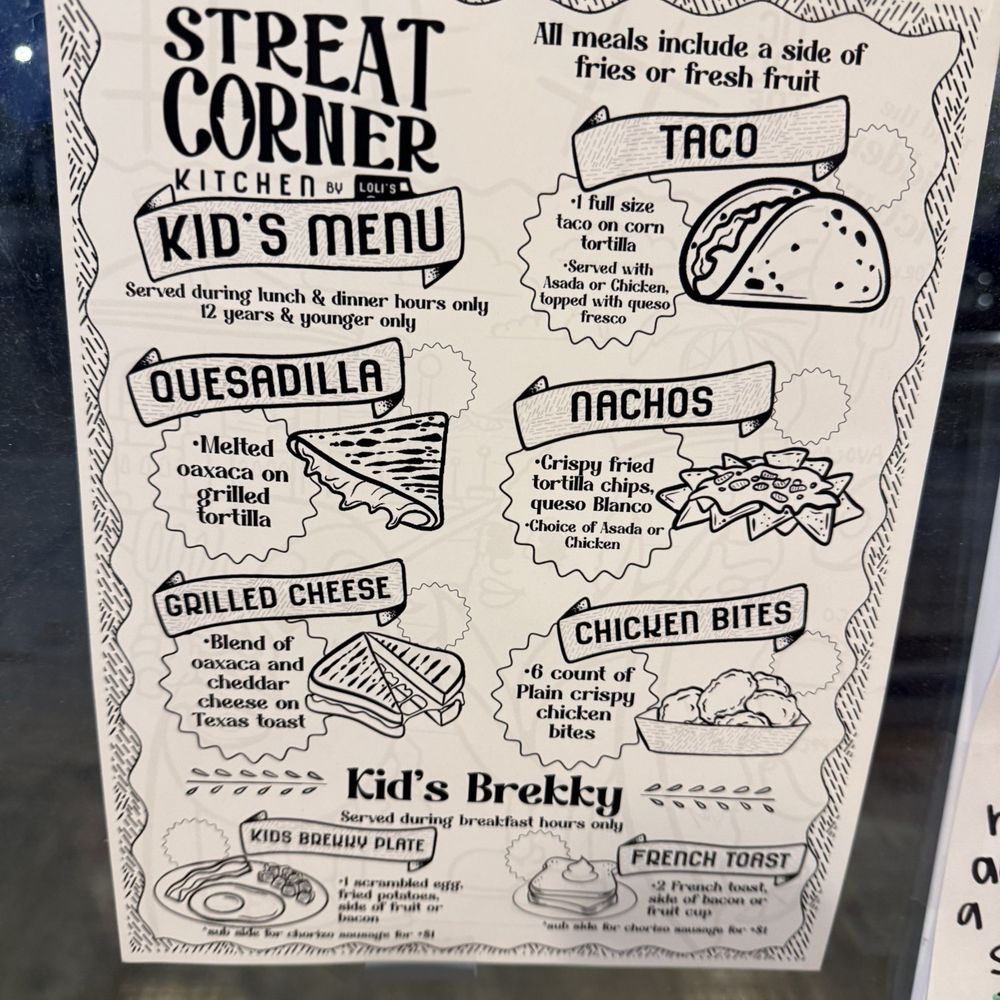 STREAT
CORNER
KITCHEN BY LOLI'S
KID'S MENU
Served during lunch & dinner hours only
12 years & younger only
All meals include a side of
fries or fresh fruit
TACO
•1 full size
taco on corn
tortilla
•Served with
Asada or Chicken,
topped with queso
fresco
QUESADILLA
•Melted
oaxaca on
grilled
tortilla
NACHOS
•Crispy fried
tortilla chips,
queso Blanco
•Choice of Asada or
Chicken
GRILLED CHEESE
•Blend of
oaxaca and
cheddar
cheese on
Texas toast
CHICKEN BITES
•6 count of
Plain crispy
chicken
bites
Kid's Brekky
Served during breakfast hours only
KIDS BREKKY PLATE
•1 scrambled egg,
fried potatoes,
side of fruit or
bacon
*sub side for chorizo sausage for +$1
FRENCH TOAST
•2 French toast,
side of bacon or
fruit cup
*sub side for chorizo sausage for +$1